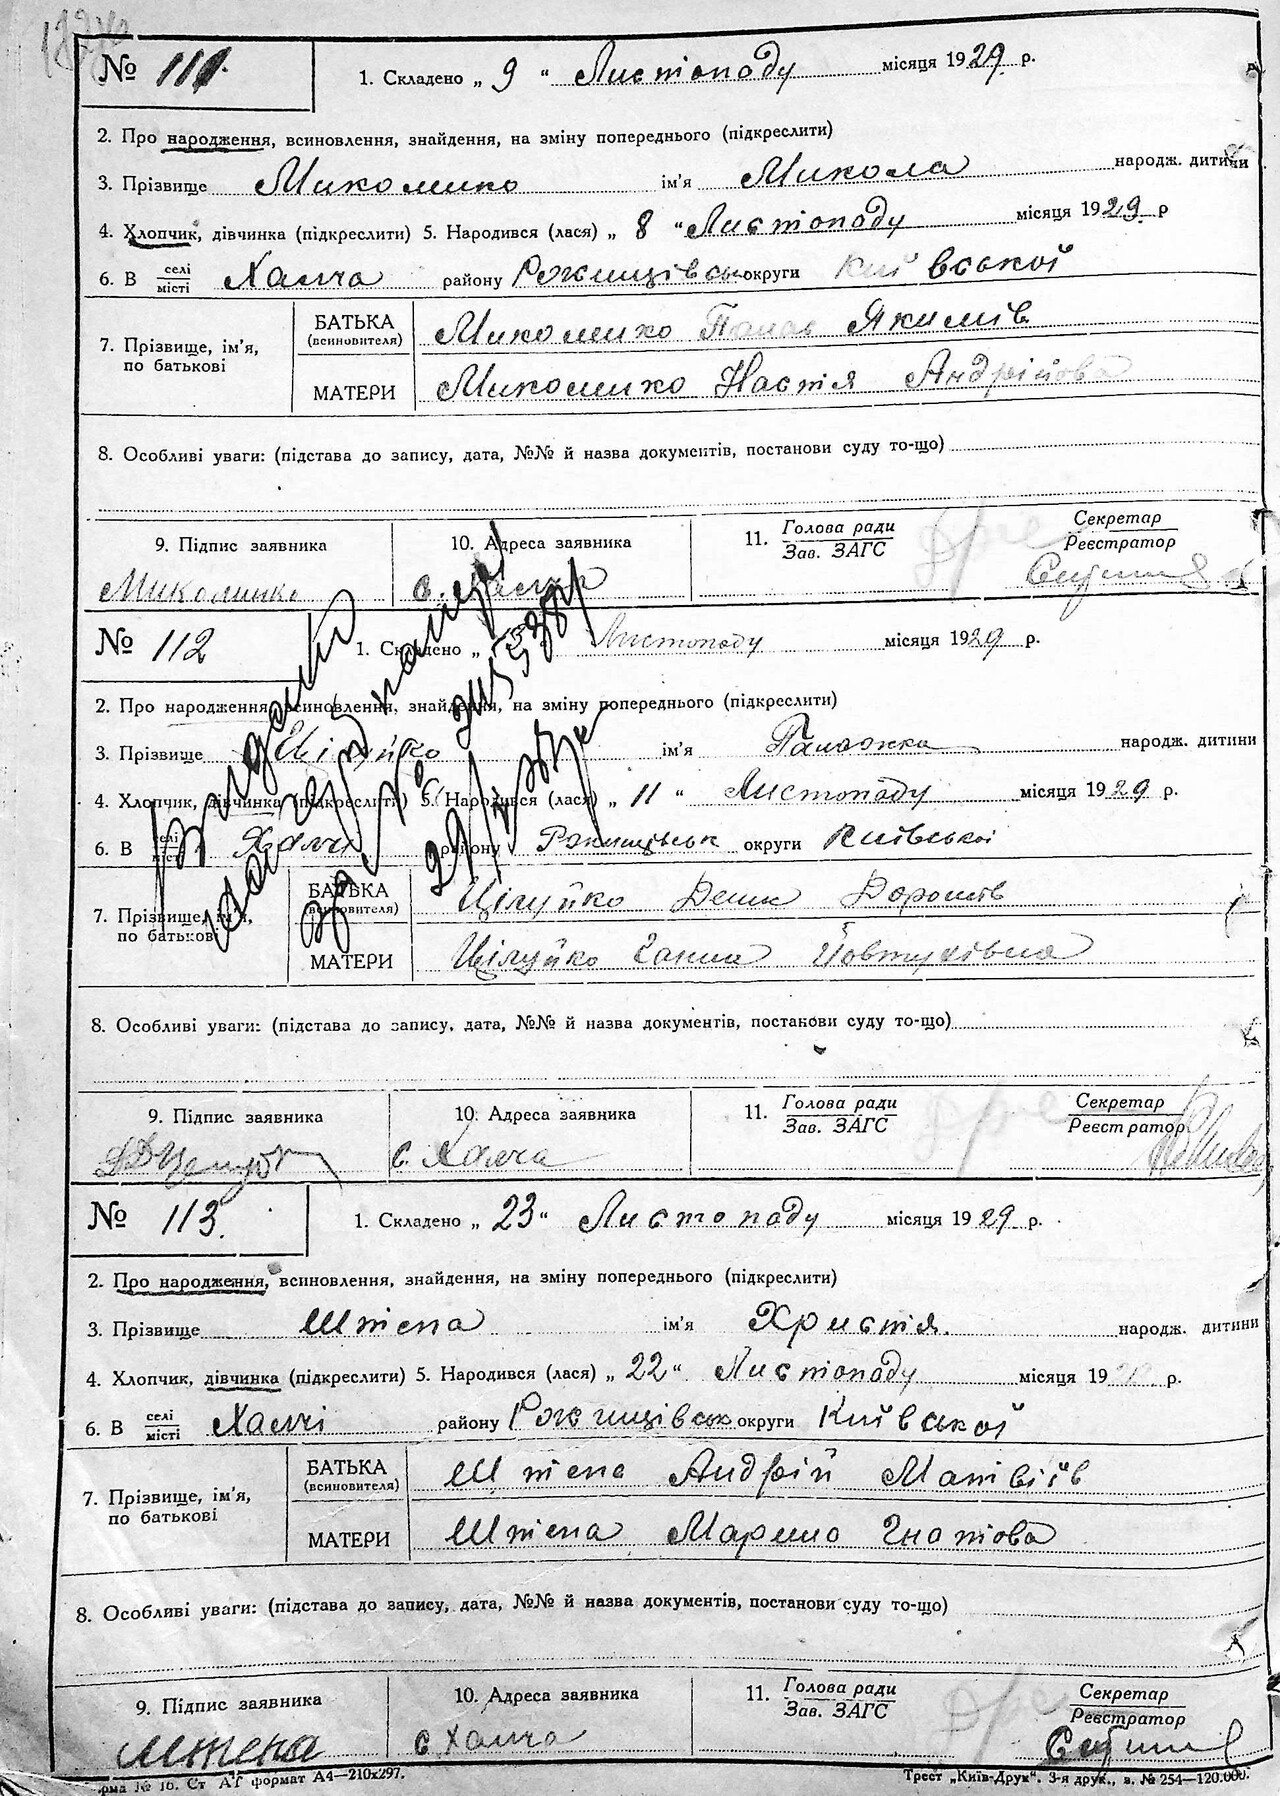 № 111. 1. Складено „ 9 “ Листопаду місяця 1929 р.
2. Про народження, всиновлення, знайдення, на зміну попереднього (підкреслити)
3. Прізвище Миколиико ім'я Микола народж. дитини
4. Хлопчик, дівчинка (підкреслити) 5. Народився (лася) „ 8 “ Листопаду місяця 1929 р
6. В селі місті Халча району Ржищівськ округи Київської
7. Прізвище, ім'я, по батькові
БАТЬКА (всиновителя) Панас Якимів
МАТЕРИ Настя Андрійова
8. Особливі уваги: (підстава до запису, дата, №№ й назва документів, постанови суду то-що)
9. Підпис заявника 10. Адреса заявника 11. Голова ради Зав. ЗАГС Секретар Реєстратор
с. Халча
№ 112 1. Складено „ “ Листопаду місяця 1929 р.
2. Про народження, всиновлення, знайдення, на зміну попереднього (підкреслити)
3. Прізвище Цілуйко ім'я Палажка народж. дитини
4. Хлопчик, дівчинка (підкреслити) 5. Народився (лася) „ 11 “ Листопаду місяця 1929 р.
6. В селі місті Халчі району Ржищівськ округи Київської
7. Прізвище, ім'я, по батькові
БАТЬКА (всиновителя) Цілуйко Демид
МАТЕРИ Цілуйко Ганна Йовтухівна
8. Особливі уваги: (підстава до запису, дата, №№ й назва документів, постанови суду то-що)
9. Підпис заявника 10. Адреса заявника 11. Голова ради Зав. ЗАГС Секретар Реєстратор
с. Халча
№ 113. 1. Складено „ 23 “ Листопаду місяця 1929 р.
2. Про народження, всиновлення, знайдення, на зміну попереднього (підкреслити)
3. Прізвище Штепа ім'я Христя. народж. дитини
4. Хлопчик, дівчинка (підкреслити) 5. Народився (лася) „ 22 “ Листопаду місяця 1929 р.
6. В селі місті Халчі району Ржищівськ округи Київської
7. Прізвище, ім'я, по батькові
БАТЬКА (всиновителя) Штепа Андрій Матвіїв
МАТЕРИ Штепа Марина Гнатова
8. Особливі уваги: (підстава до запису, дата, №№ й назва документів, постанови суду то-що)
9. Підпис заявника 10. Адреса заявника 11. Голова ради Зав. ЗАГС Секретар Реєстратор
Штепа с Халча
рма № 16. Ст А7 формат А4—210х297. Трест „Київ-Друк“. 3-я друк., в. № 254—120.000.